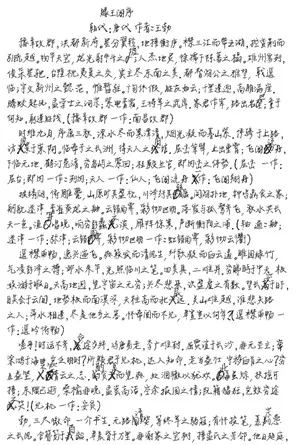 滕王阁序
朝代:唐代 作者:王勃
豫章故郡,洪都新府。星分翼轸,地接衡庐。襟三江而带五湖,控蛮荆而
引瓯越。物华天宝,龙光射牛斗之墟;人杰地灵,徐孺下陈蕃之榻。雄州雾列,
俊采星驰。台隍枕夷夏之交,宾主尽东南之美。都督阎公之雅望,棨戟遥
临;宇文新州之懿范,襜帷暂驻。十旬休假,胜友如云;千里逢迎,高朋满座。
腾蛟起凤,孟学士之词宗;紫电青霜,王将军之武库。家君作宰,路出名区;童子
何知,躬逢胜饯。(豫章故郡 一作:南昌故郡)
时维九月,序属三秋。潦水尽而寒潭清,烟光凝而暮山紫。俨骖騑于上路,
访风景于崇阿。临帝子之长洲,得天人之旧馆。层峦耸翠,上出重霄;飞阁流丹,
下临无地。鹤汀凫渚,穷岛屿之萦回;桂殿兰宫,即冈峦之体势。(层峦 一作:
层台;即冈 一作:列冈;天人 一作:仙人;飞阁流丹 一作:飞阁翔丹)
披绣闼,俯雕甍,山原旷其盈视,川泽纡其骇瞩。闾阎扑地,钟鸣鼎食之家;
舸舰迷津,青雀黄龙之舳。云销雨霁,彩彻区明。落霞与孤鹜齐飞,秋水共长
天一色。渔舟唱晚,响穷彭蠡之滨;雁阵惊寒,声断衡阳之浦。(轴 通:舳;
迷津 一作:弥津;云销雨霁,彩彻区明 一作:虹销雨霁,彩彻云衢)
遥襟甫畅,逸兴遄飞。爽籁发而清风生,纤歌凝而白云遏。睢园绿竹,
气凌彭泽之樽;邺水朱华,光照临川之笔。四美具,二难并。穷睇眄于中天,极
娱游于暇日。天高地迥,觉宇宙之无穷;兴尽悲来,识盈虚之有数。望长安于日
下,目吴会于云间。地势极而南溟深,天柱高而北辰远。关山难越,谁悲失路
之人;萍水相逢,尽是他乡之客。怀帝阍而不见,奉宣室以何年?(遥襟甫畅 一
作:遥吟俯畅)
嗟乎!时运不齐,命途多舛。冯唐易老,李广难封。屈贾谊于长沙,非无圣主;窜
梁鸿于海曲,岂乏明时?所赖君子见机,达人知命。老当益壮,宁移白首之心?穷
且益坚,不坠青云之志。酌贪泉而觉爽,处涸辙以犹欢。北海虽赊,扶摇可
接;东隅已逝,桑榆非晚。孟尝高洁,空余报国之情;阮籍猖狂,岂效穷途
之哭!(见机 一作:安贫)
勃,三尺微命,一介书生。无路请缨,等终军之弱冠;有怀投笔,慕宗悫
之长风。舍簪笏于百龄,奉晨昏于万里。非谢家之宝树,接孟氏之芳邻。他日